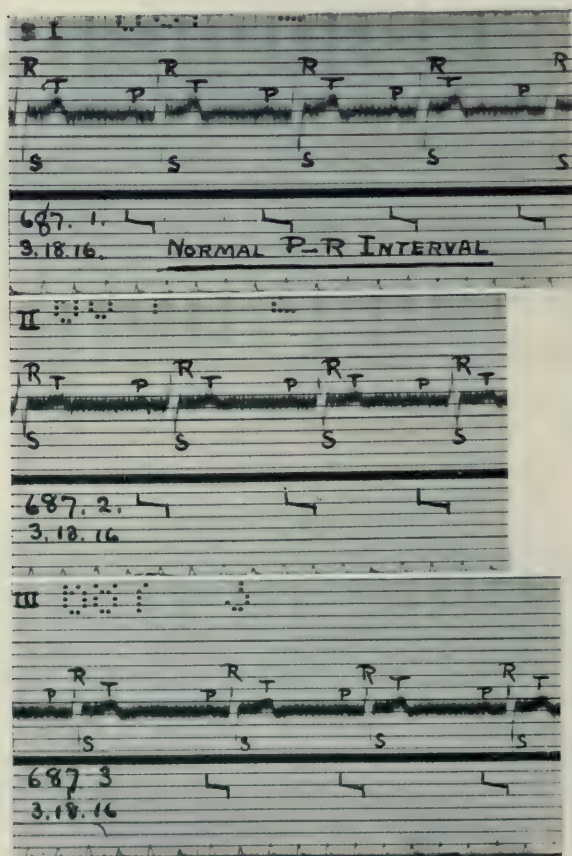 S I
R R R R R
T T T T
P P P P
S S S S S
687. 1.
3.18.16. NORMAL P-R INTERVAL
II
R R R R
T T T T
P P P
S S S S
687. 2.
3.18.16
III
R R R R
P T P T P T P T
S S S S
687 3
3.18.16